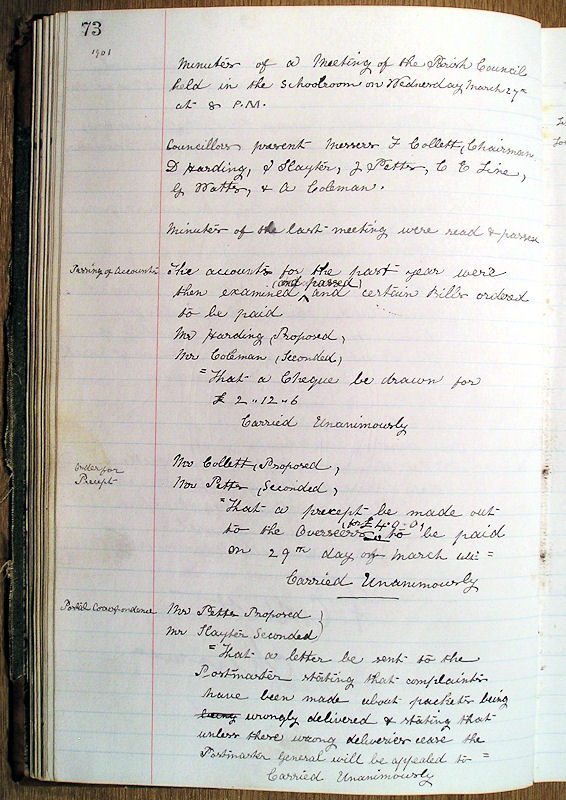 73
1901
Minutes of a Meeting of the Parish Council
held in the Schoolroom on Wednesday March 27th
at 8 P.M.
Councillors present Messers F Collett, Chairman
D Harding, J Slayter, J Petter, C E Line,
G Watts, & A Coleman.
Minutes of the last meeting were read & passed
Passing of Accounts
The accounts for the past year were
(and passed)
then examined ^ and certain Bills ordered
to be paid
Mr Harding, Proposed,
Mr Coleman, Seconded,
"That a Cheque be drawn for
£ 2 " 12 " 6
Carried Unanimously
Order for
Precept
Mr Collett, Proposed,
Mr Petter, Seconded,
"That a precept be made out
(for £4-0-0)
to the Overseers to be paid
on 29th day of March
Carried Unanimously
Postal Correspondence
Mr Petter Proposed
Mr Slayter Seconded
"That a letter be sent to the
Postmaster stating that complaints
have been made about packets being
being wrongly delivered & stating that
unless these wrong deliveries cease the
Postmaster General will be appealed to =
Carried Unanimously